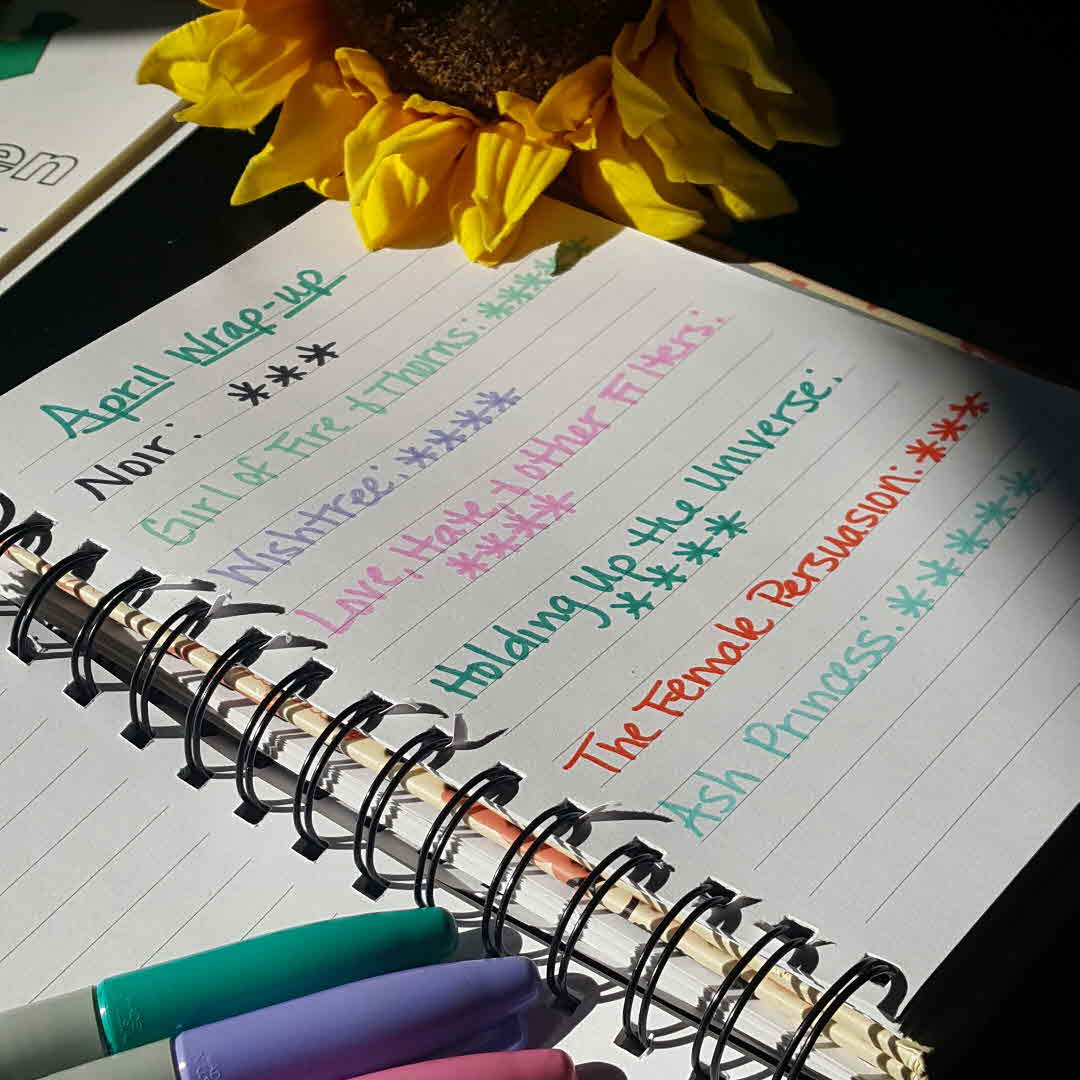 en
April Wrap-up
Noir: ***
Girl of Fire & Thorns: ****
Wishtree: ****
Love, Hate, & other Filters:
****
Holding Up the Universe:
****
The Female Persuasion: ***
Ash Princess: *****